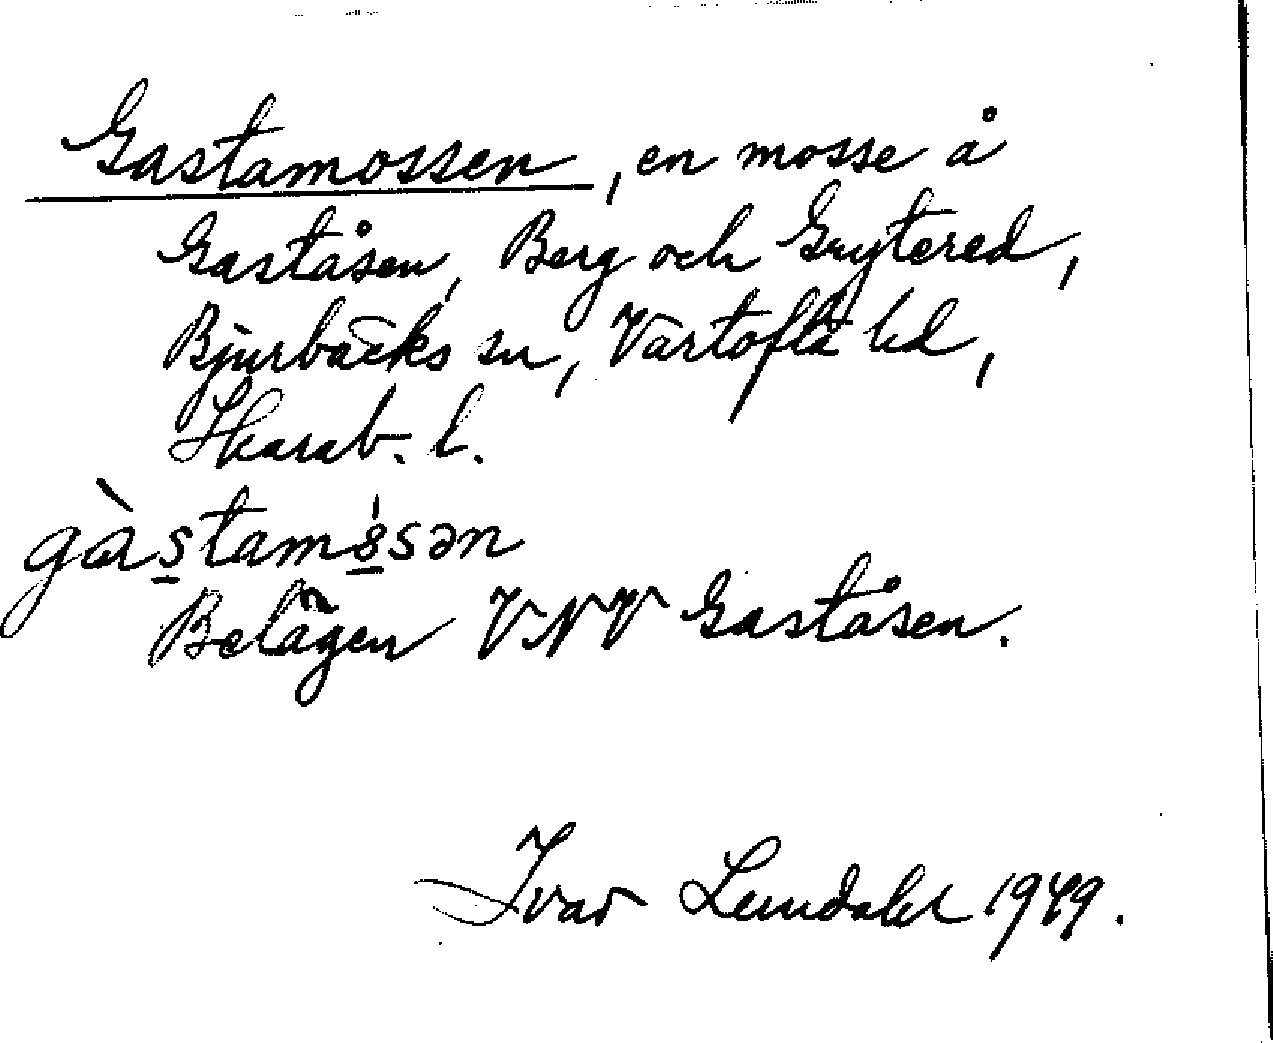 Gastamossen, en mosse å
Gaståsen, Berg och Grytered,
Bjurbäcks sn, Vartofta hd,
Skarab. l.
gàs̱tamós̱sən
Belägen VNV Gaståsen.
Ivar Lundahl 1949.